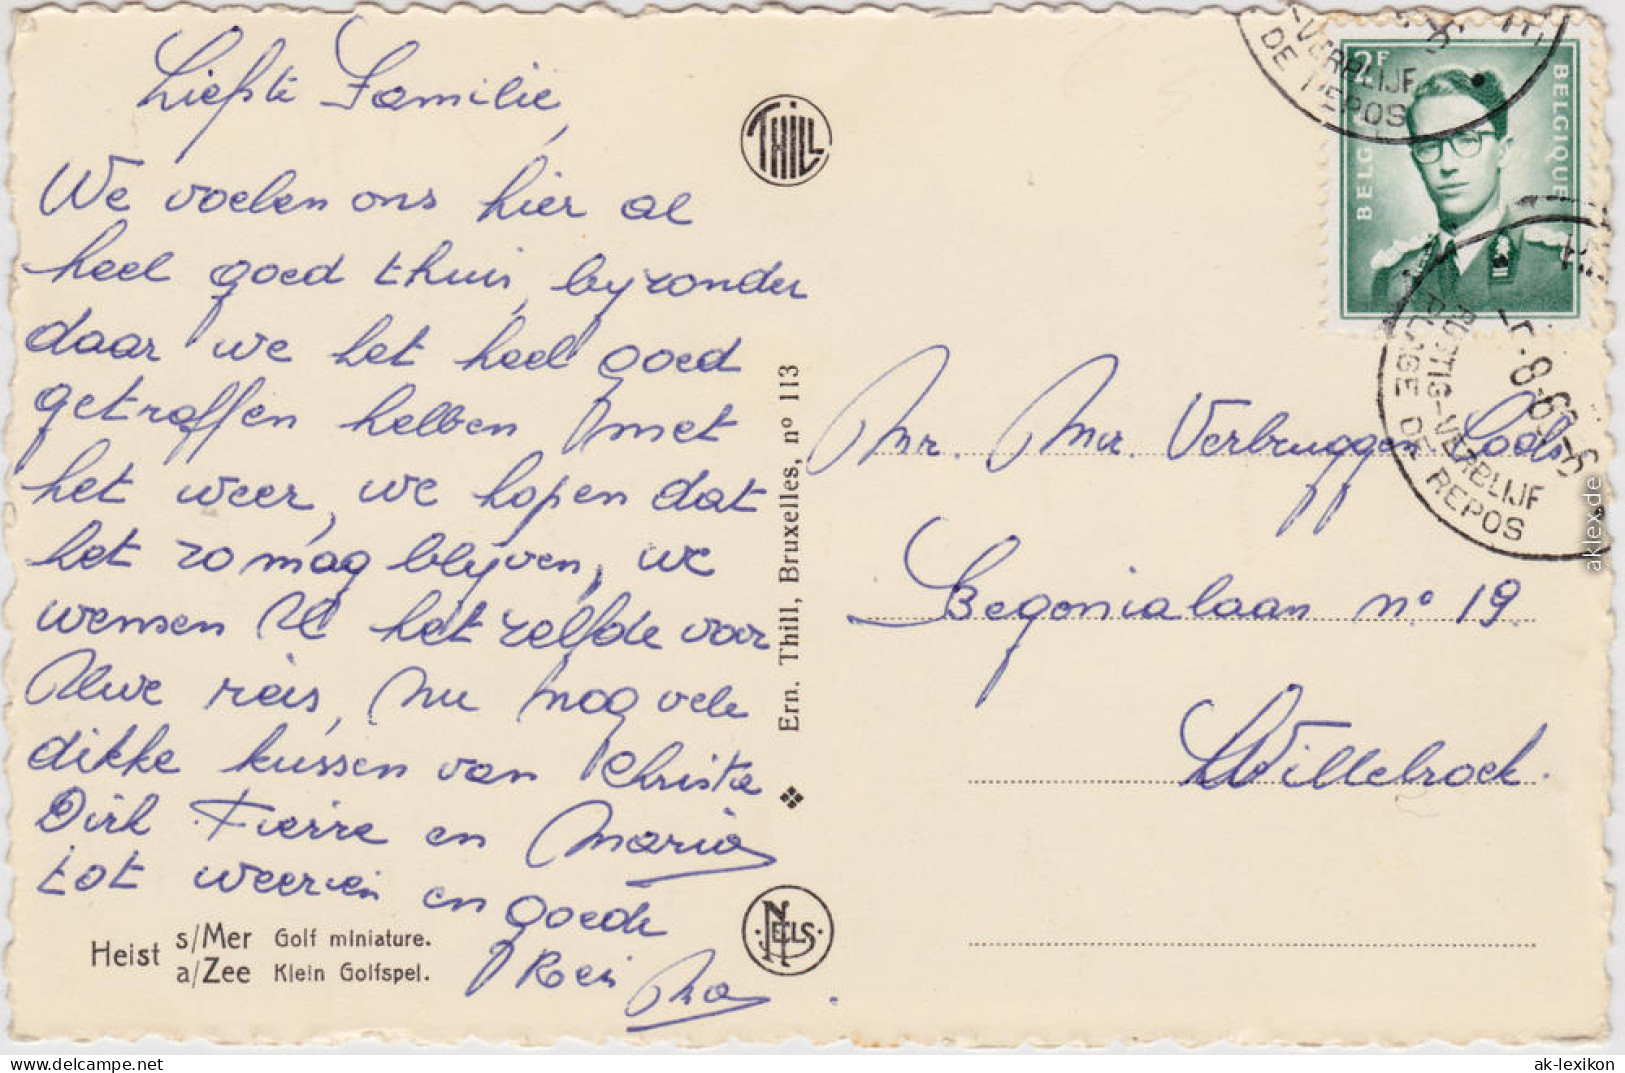 Liefste Familie,
We voelen ons hier al
heel goed thuis, byzonder
daar we het heel goed
getroffen hebben met
het weer, we hopen dat
het zo mag blijven, we
wensen U het zelfde voor
Uwe reis, nu nog vele
dikke kussen van Christa
Dirk Pierre en Maria
tot weerzien en goede
Reis
Heist s/Mer Golf miniature.
a/Zee Klein Golfspel.
THILL
Ern. Thill, Bruxelles, nº 113
NELS
2F
BELGIQUE
BELG
-VERBLIJF
DE REPOS
RUSTIG-VERBLIJF
PLAGE DE REPOS
Mr. Mvr. Verbruggen
Begonialaan nº 19
Willebroek.
aklex.de
www.delcampe.net
ak-lexikon